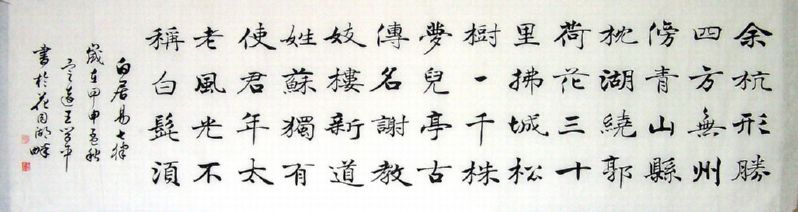 余杭形勝
四方無州
傍青山縣
枕湖繞郭
荷花三十
里拂城松
樹一千株
夢兒亭古
傳名謝教
妓樓新道
姓蘇獨有
使君年太
老風光不
稱白髭湏
白居易七律
歲在甲申秋
王平
書於花園湖畔